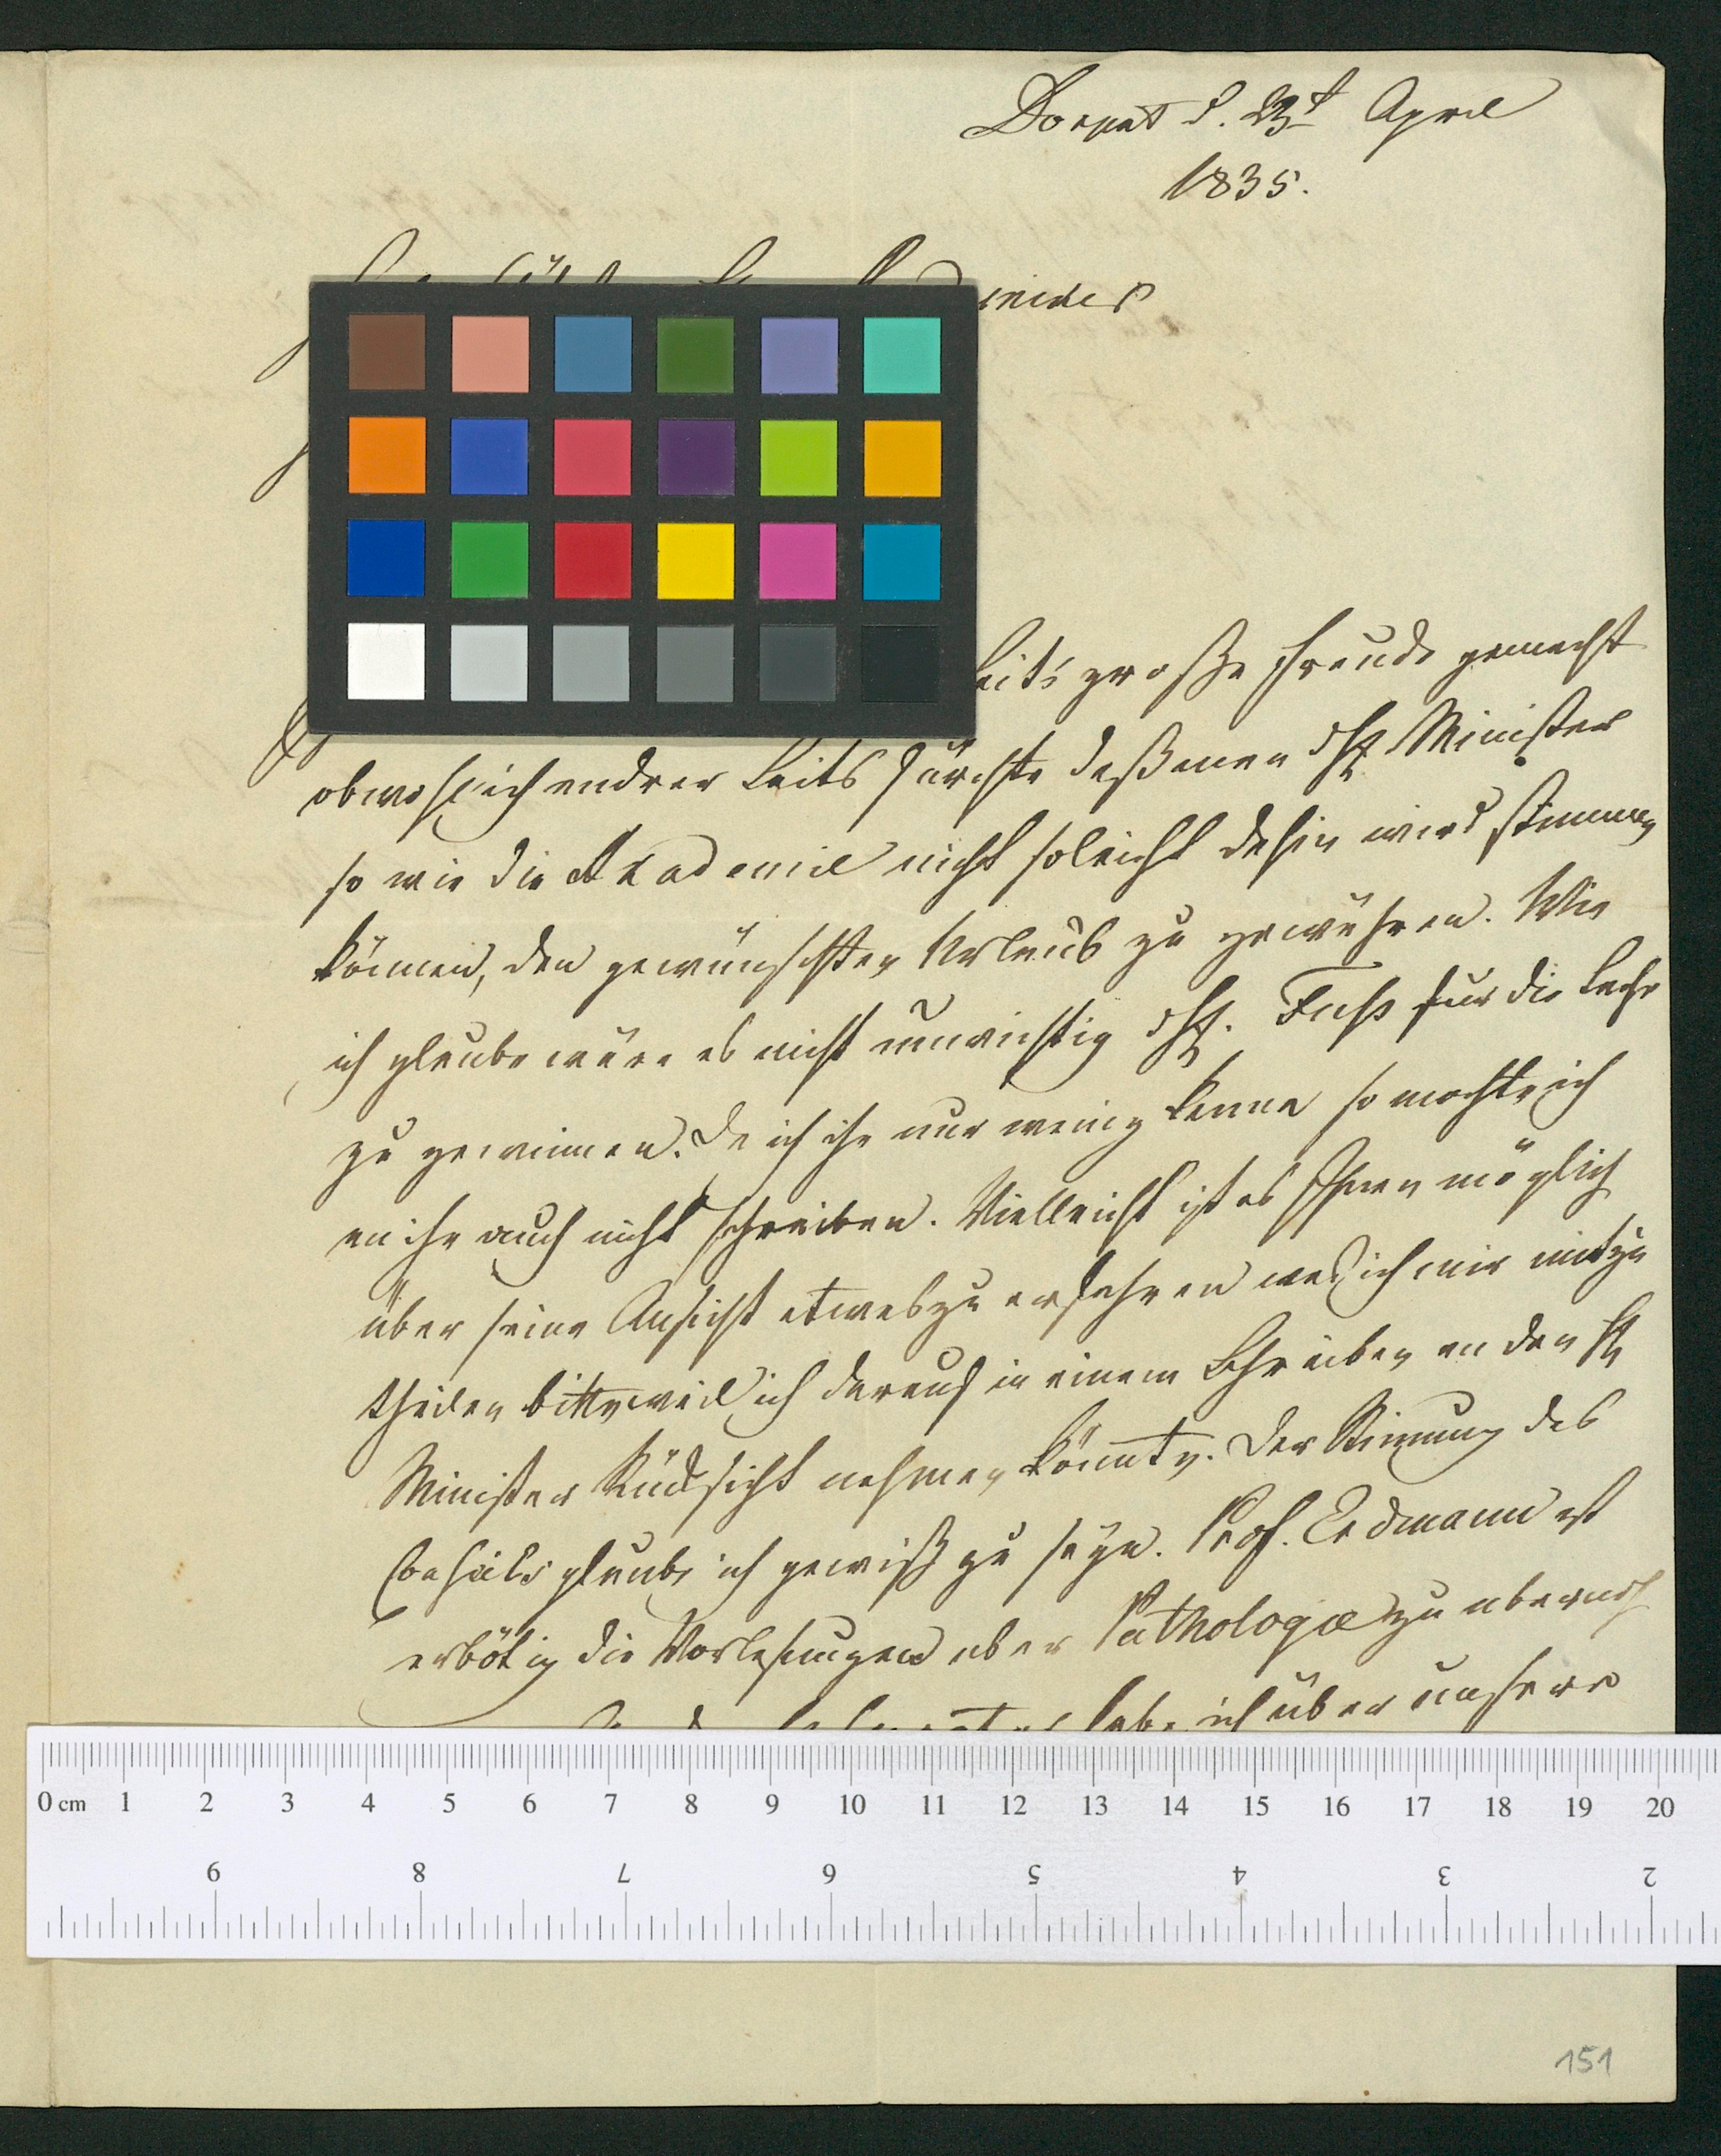 Dorpat d. 23t April
1835.
seits große Freude gemacht
obwohl ich andrer Seits fürchte daß man d H Minister
so wie die Akademie nicht so leicht dahin wird stimmen
können, den gewünschten Urlaub zu gewähren. Wie
ich glaube wäre es nicht unwichtig d H. Fuß für die Sache
zu gewinnen. Da ich ihn nur wenig kenne so mochte ich
an ihn auch nicht schreiben. Vielleicht ist es Ihnen möglich
über seine Ansicht etwas zu erfahren was ich mir mitzu
theilen bitte weil ich darauf in einem Schreiben an den H
Minister Rücksicht nehmen könnte. Der Stimung des
Conseils glaube ich gewiß zu seyn. Prof. Erdmann ist
erbötig die Vorlesungen uber Pathologie zu
habe ich über unsere
0 cm 1 2 3 4 5 6 7 8 9 10 11 12 13 14 15 16 17 18 19 20
9 8 7 6 5 4 3 2
151